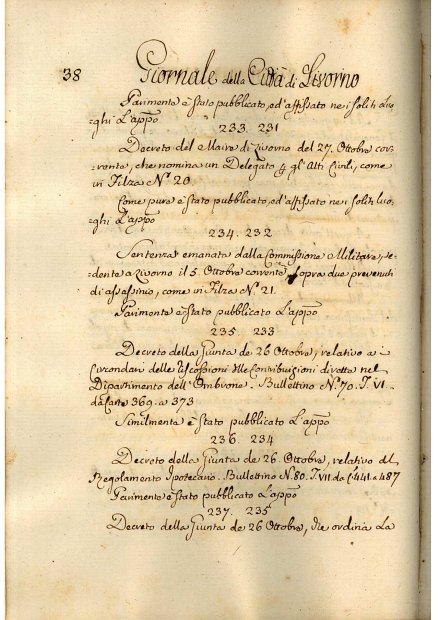 38 Giornale della Città di Livorno
Parimente è stato pubblicato, ed' affissato nei soliti Luo-
ghi L'appo
233. 231
Decreto del Maire di Livorno del 27. Ottobre cor-
rente, che nomina un Delegato p gl' Atti Civili, come
in Filza N.º 20.
Come pure è stato pubblicato, ed' affissato nei soliti luo-
ghi L'appo
234. 232
Sentenza emanata dalla Commissione Militare, se-
dente a Livorno il 5. Ottobre corrente, sopra due prevenuti
di assassinio, come in Filza N.º 21.
Parimente è stato pubblicato L'appo
235. 233
Decreto della Giunta de 26 Ottobre, relativo a i
Circondari delle Riscossioni Contribuzioni dirette nel
Dipartimento dell' Ombrone. Bullettino N.º 70. T. VI.
da Carte 369. a 373
Similmente è stato pubblicato L'appo
236. 234
Decreto della Giunta de 26. Ottobre, relativo al
Regolamento Ipotecario. Bullettino N. 80. T. VII da C. 441. a 487
Parimente è stato pubblicato L'appo
237. 235
Decreto della Giunta de 26 Ottobre, che ordina La